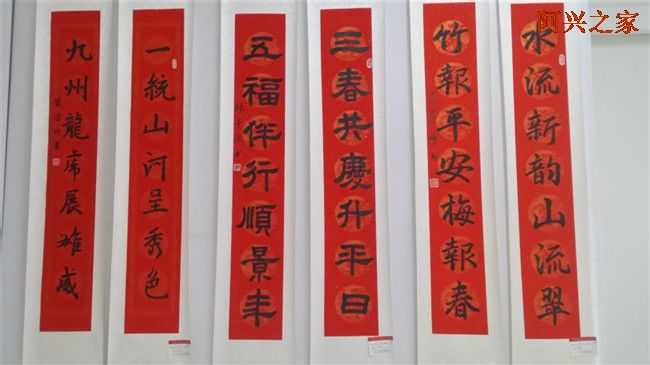 阿兴之家
水流新韵山流翠
竹報平安梅報春
三春共慶升平日
五福伴行順景丰
一統山河呈秀色
九州龍虎展雄威